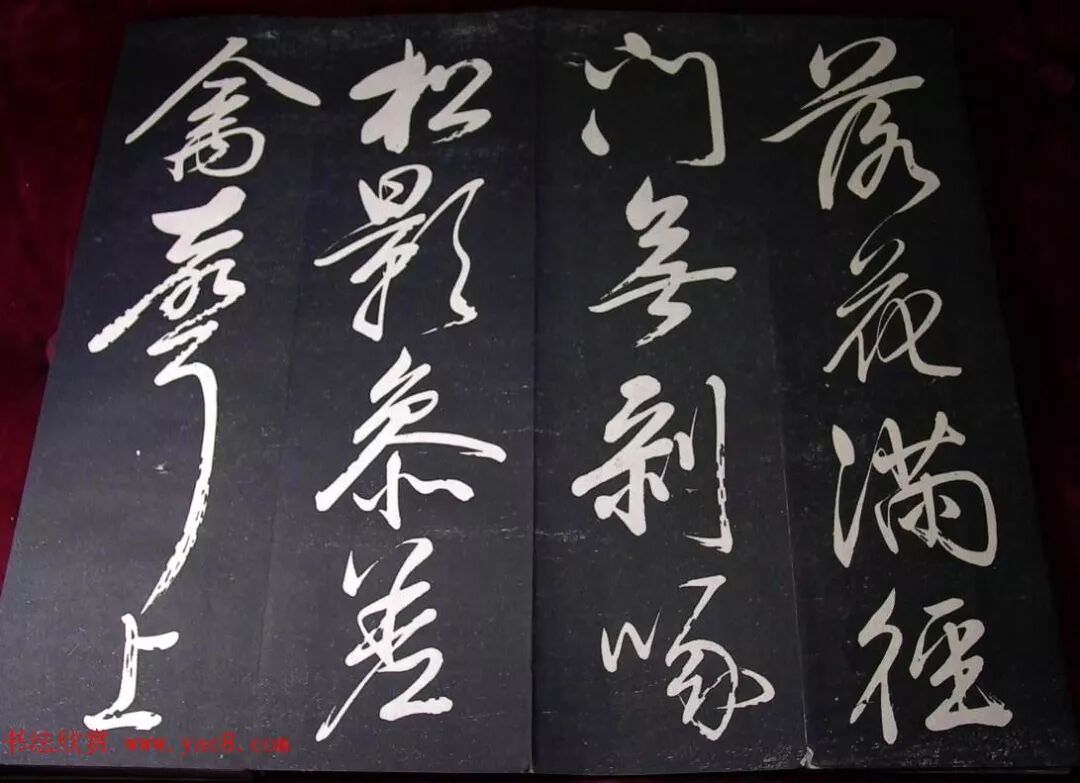 落花满徑
門無剥啄
松影参差
禽聲上
书法欣赏 www.yac8.com